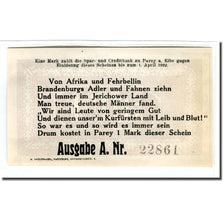 Eine Mark zahlt die Spar- und Creditbank zu Parey a. Elbe gegen
Einlösung dieses Scheines bis zum 1. April 1922.
Von Afrika und Fehrbellin
Brandenburgs Adler und Fahnen ziehn
Und immer im Jerichower Land
Man treue, deutsche Männer fand.
„Wir sind Leute von geringem Gut
Und dienen unser'm Kurfürsten mit Leib und Blut!"
So war es und so wird es immer sein
Drum kostet in Parey 1 Mark dieser Schein
Ausgabe A. Nr. 22861